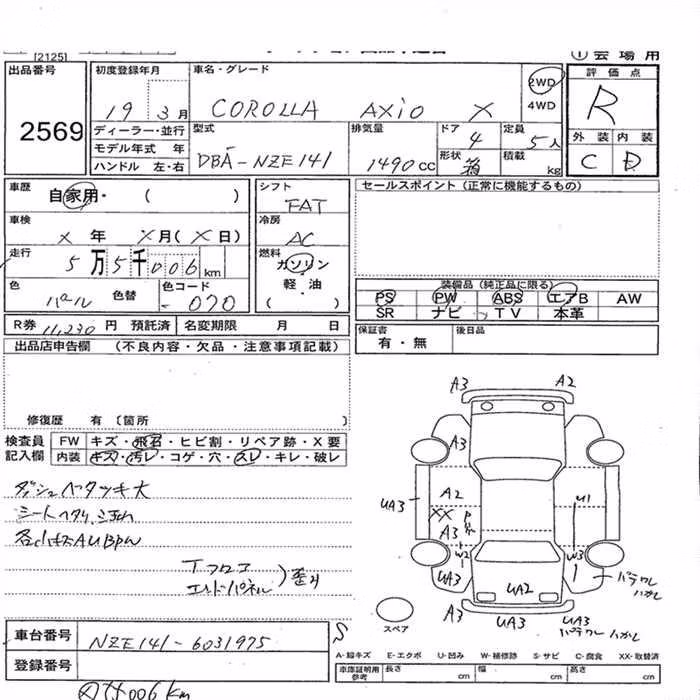 [2125]
① 会場用
出品番号
2569
初度登録年月
19 3月
ディーラー・並行
モデル年式 年
ハンドル 左・右
車名・グレード
COROLLA AXIO X
2WD
4WD
型式
DBA-NZE141
排気量
1490cc
ドア
4
定員
5人
形状
箱
積載
kg
評価点
R
外装 内装
C D
車歴
自家用・( )
車検
X 年 X月(X日)
走行
5万5千006km
色
パール
色替
色コード
- 070
シフト
FAT
冷房
AC
燃料
ガソリン
軽・油
( )
R券 11,230 円 預託済
名変期限 月 日
セールスポイント(正常に機能するもの)
装備品(純正品に限る)
PS PW ABS エアB AW
SR ナビ TV 本革
保証書
有・無
後日品
出品店申告欄 (不良内容・欠品・注意事項記載)
修復歴 有 〔箇所
検査員
記入欄
FW キズ・飛石・ヒビ割・リペア跡・X要
内装 キズ・汚レ・コゲ・穴・スレ・キレ・破レ
ダッシュベタツキ大
A3 A2
A3
UA3
A2
XX
A3
U1
W2
W3
UA3
UA2
A3
UA3
UA3
バラワレ ハガレ
Tフロア
エンドパネル
歪み
車台番号
NZE141-6031975
登録番号
スペア
A-線キズ E-エクボ U-凹み W-補修跡 S-サビ C-腐食 XX-取替済
車庫証明用
参考
長さ cm
幅 cm
高さ cm